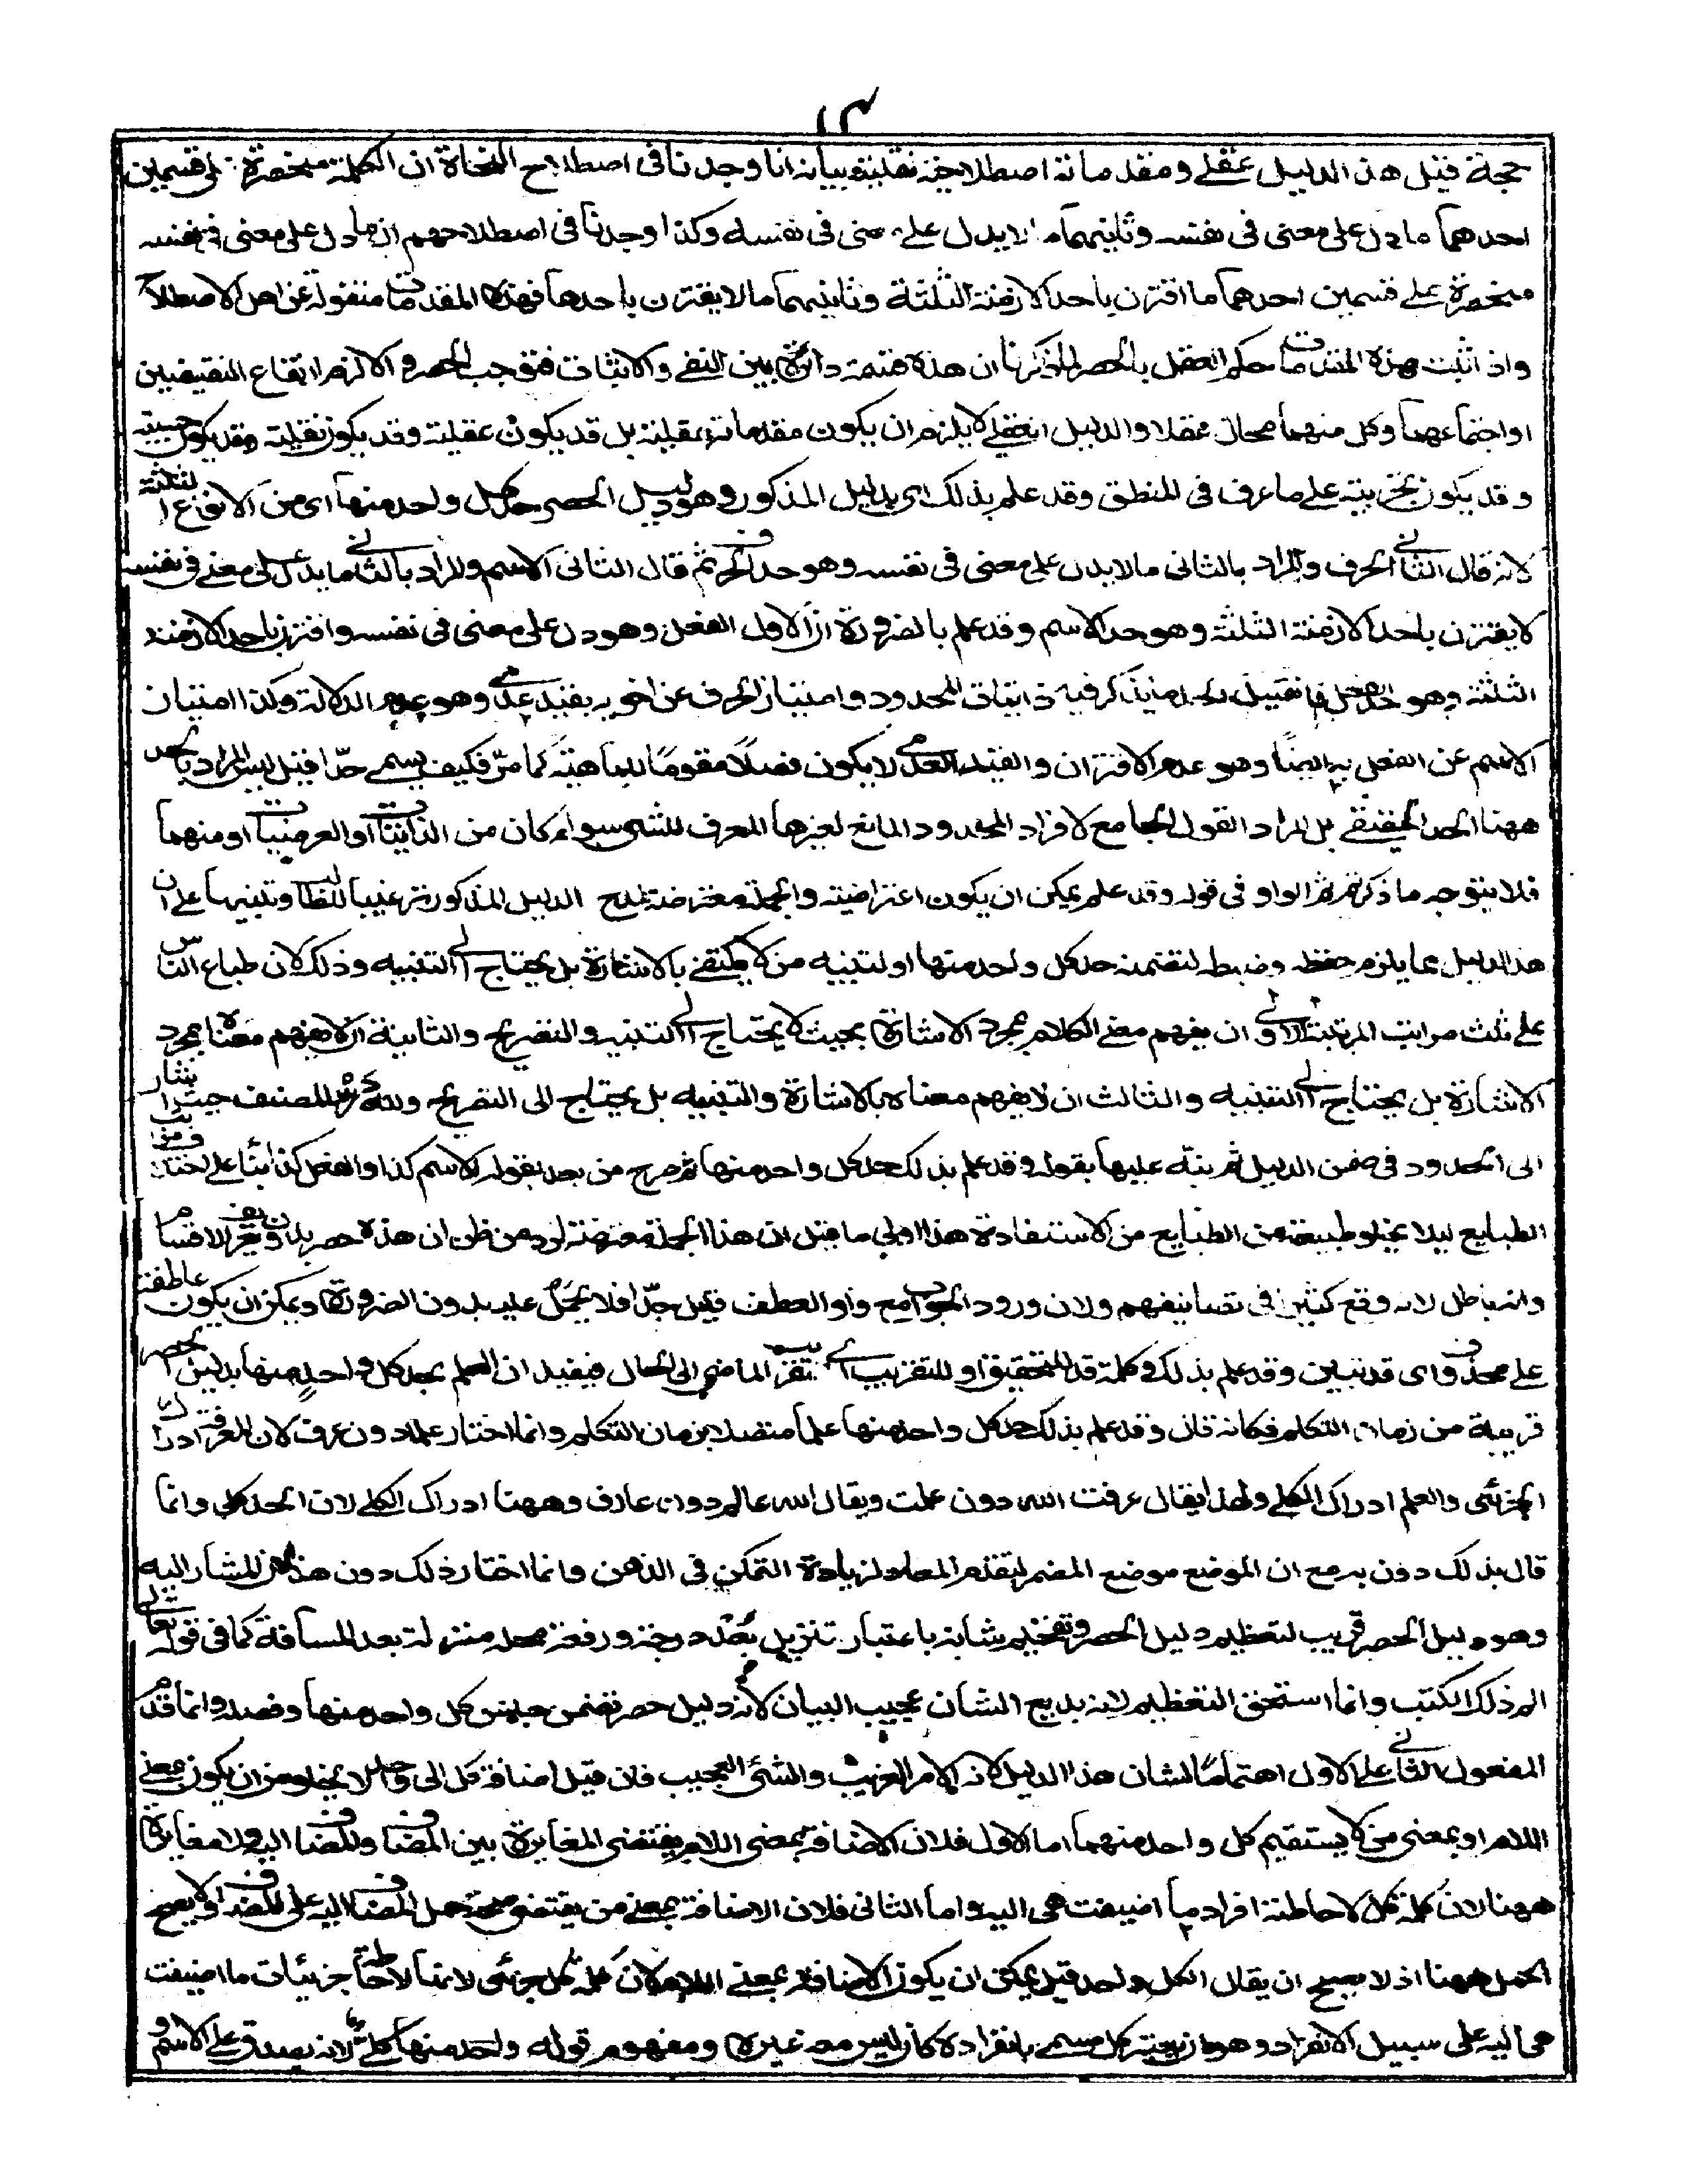 ١٣
حجة قيل هذا الدليل عقلى ومقدماته اصطلاحية نقلية بيانه انا وجدنا فى اصطلاح النحاة ان الكلمة منحصرة على قسمين
احدهما ما دل على معنى فى نفسه وثانيهما ما لا يدل على معنى فى نفسه وكذا وجدنا فى اصطلاحهم ان ما دل على معنى فى نفسه
منحصرة على قسمين احدهما ما اقترن باحد الازمنة الثلثة وثانيهما ما لا يقترن باحدها فهذه المقدمات منقولة عن اهل الاصطلاح
واذ اثبت هذه المقدمات حكم العقل بالحصر لما ذكرنا ان هذه قسمة دائرة بين النفى والاثبات فتوجب الحصر والا لزم ارتفاع النقيضين
او اجتماعهما وكل منهما محال عقلا والدليل العقلى لا يلزم ان يكون مقدماته عقلية بل قد يكون عقلية وقد يكون نقلية وقد يكون حسية
وقد يكون تجريبية على ما عرف فى المنطق وقد علم بذلك اى بدليل المذكور وهو دليل الحصر حد كل واحد منها اى من الانواع الثلثة
لانه قال الثانى الحرف والمراد بالثانى ما لا يدل على معنى فى نفسه وهو حد الحرف ثم قال الثانى الاسم والمراد بالثانى ما يدل على معنى فى نفسه
لا يقترن باحد الازمنة الثلثة وهو حد الاسم وقد علم بالضرورة ان الاول الفعل وهو دل على معنى فى نفسه واقترن باحد الازمنة
الثلثة وهو حد الفعل فان قيل الحد ما يذكر فيه ذاتيات المحدود وامتياز الحرف عن اخويه بقيد عدمى وهو عدم الدلالة وكذا امتياز
الاسم عن الفعل به ايضا وهو عدم الاقتران والقيد العدمى لا يكون فصلا مقوما للماهية كما مر فكيف يسمى حدا قيل ليس المراد بالحد
ههنا الحد الحقيقى بل المراد القول الجامع لافراد المحدود المانع لغيرها المعرف للشى سواء كان من الذاتيات او العرضيات او منهما
فلا يتوجه ما ذكرتم ثم الواو فى قوله وقد علم يمكن ان يكون اعتراضية والجملة معترضة لمدح الدليل المذكور ترغيبا للطالب وتنبيها على ان
هذا الدليل مما يلزم حفظه وضبطه لتضمنه حد كل واحد منها او لتنبيه من لا يكتفى بالاشارة بل يحتاج الى التنبيه وذلك لان طباع الناس
على ثلث مراتب المرتبة الاولى ان يفهم معنى الكلام بمجرد الاشارة بحيث لا يحتاج الى التنبيه والتصريح والثانية ان لا يفهم معناه بمجرد
الاشارة بل يحتاج الى التنبيه والثالث ان لا يفهم معناه بالاشارة والتنبيه بل يحتاج الى التصريح ولله در المصنف حيث اشار
الى الحدود فى ضمن الدليل ثم نبه عليها بقوله وقد علم بذلك حد كل واحد منها ثم صرح من بعد بقوله الاسم كذا والفعل كذا بناء على اختلاف مراتب
الطبايع ليلا يخلو طبيعة من الطبايع من الاستفادة هذا اولى ما قيل ان هذا الجملة معترضة لرد من ظن ان هذه حصر بدون تعريف الاقسام
وانه باطل لانه وقع كثيرا فى تصانيفهم ولان ورود الجوامع واو العطف قليل جدا فلا يحمل عليه بدون الضرورة ويمكن ان يكون عاطفة
على محذوف اى قد تبين وقد علم بذلك وكلمة قد للتحقيق او للتقريب اى تقرب الماضى الى الحال فيفيد ان العلم بحد كل واحد منها بدليل الحصر
قريبة من زمان التكلم فكانه قال وقد علم بذلك حد كل واحد منها علما متصلا بزمان التكلم وانما اختار علم دون عرف لان المعرفة ادراك
الجزئى والعلم ادراك الكلى ولهذا يقال عرفت الله دون علمت ويقال الله عالم دون عارف وههنا ادراك الكلى لان الحد كلى وانما
قال بذلك دون به مع ان الموضع موضع المضمر لتقدم المعاد لزيادة التمكن فى الذهن وانما اختار ذلك دون هذا مع ان المشار اليه
وهو دليل الحصر قريب لتعظيم دليل الحصر وتفخيم شانه باعتبار تنزيل بعد درجته ورفعة محله منزلة بعد المسافة كما فى قوله تعالى
الم ذلك الكتب وانما استحق التعظيم لانه بديع الشان عجيب البيان لانه دليل حصر تضمن جنس كل واحد منها وفصله وانما قدم
المفعول الثانى على الاول اهتماما لشان هذا الدليل لانه كالامر الغريب والشئ العجيب فان قيل اضافة كل الى واحد لا يخلو من ان يكون بمعنى
اللام او بمعنى من لا يستقيم كل واحد منهما اما الاول فلان الاضافة بمعنى اللام يقتضى المغايرة بين المضاف والمضاف اليه ولا مغايرة
ههنا لان كلمة كل لاحاطة افراد ما اضيفت هى اليه واما الثانى فلان الاضافة بمعنى من يقتضى صحة حمل المضاف اليه على المضاف ولا يصح
الحمل ههنا اذ لا يصح ان يقال الكل واحد قيل يمكن ان يكون الاضافة بمعنى اللام لان كلمة كل جزئى لانها لاحاطة جزئيات ما اضيفت
هى اليه على سبيل الانفراد وهو ان يعتبر كل مسمى بانفراده كان ليس معه غيره ومفهوم قوله واحد منها كلى لانه يصدق على الاسم و